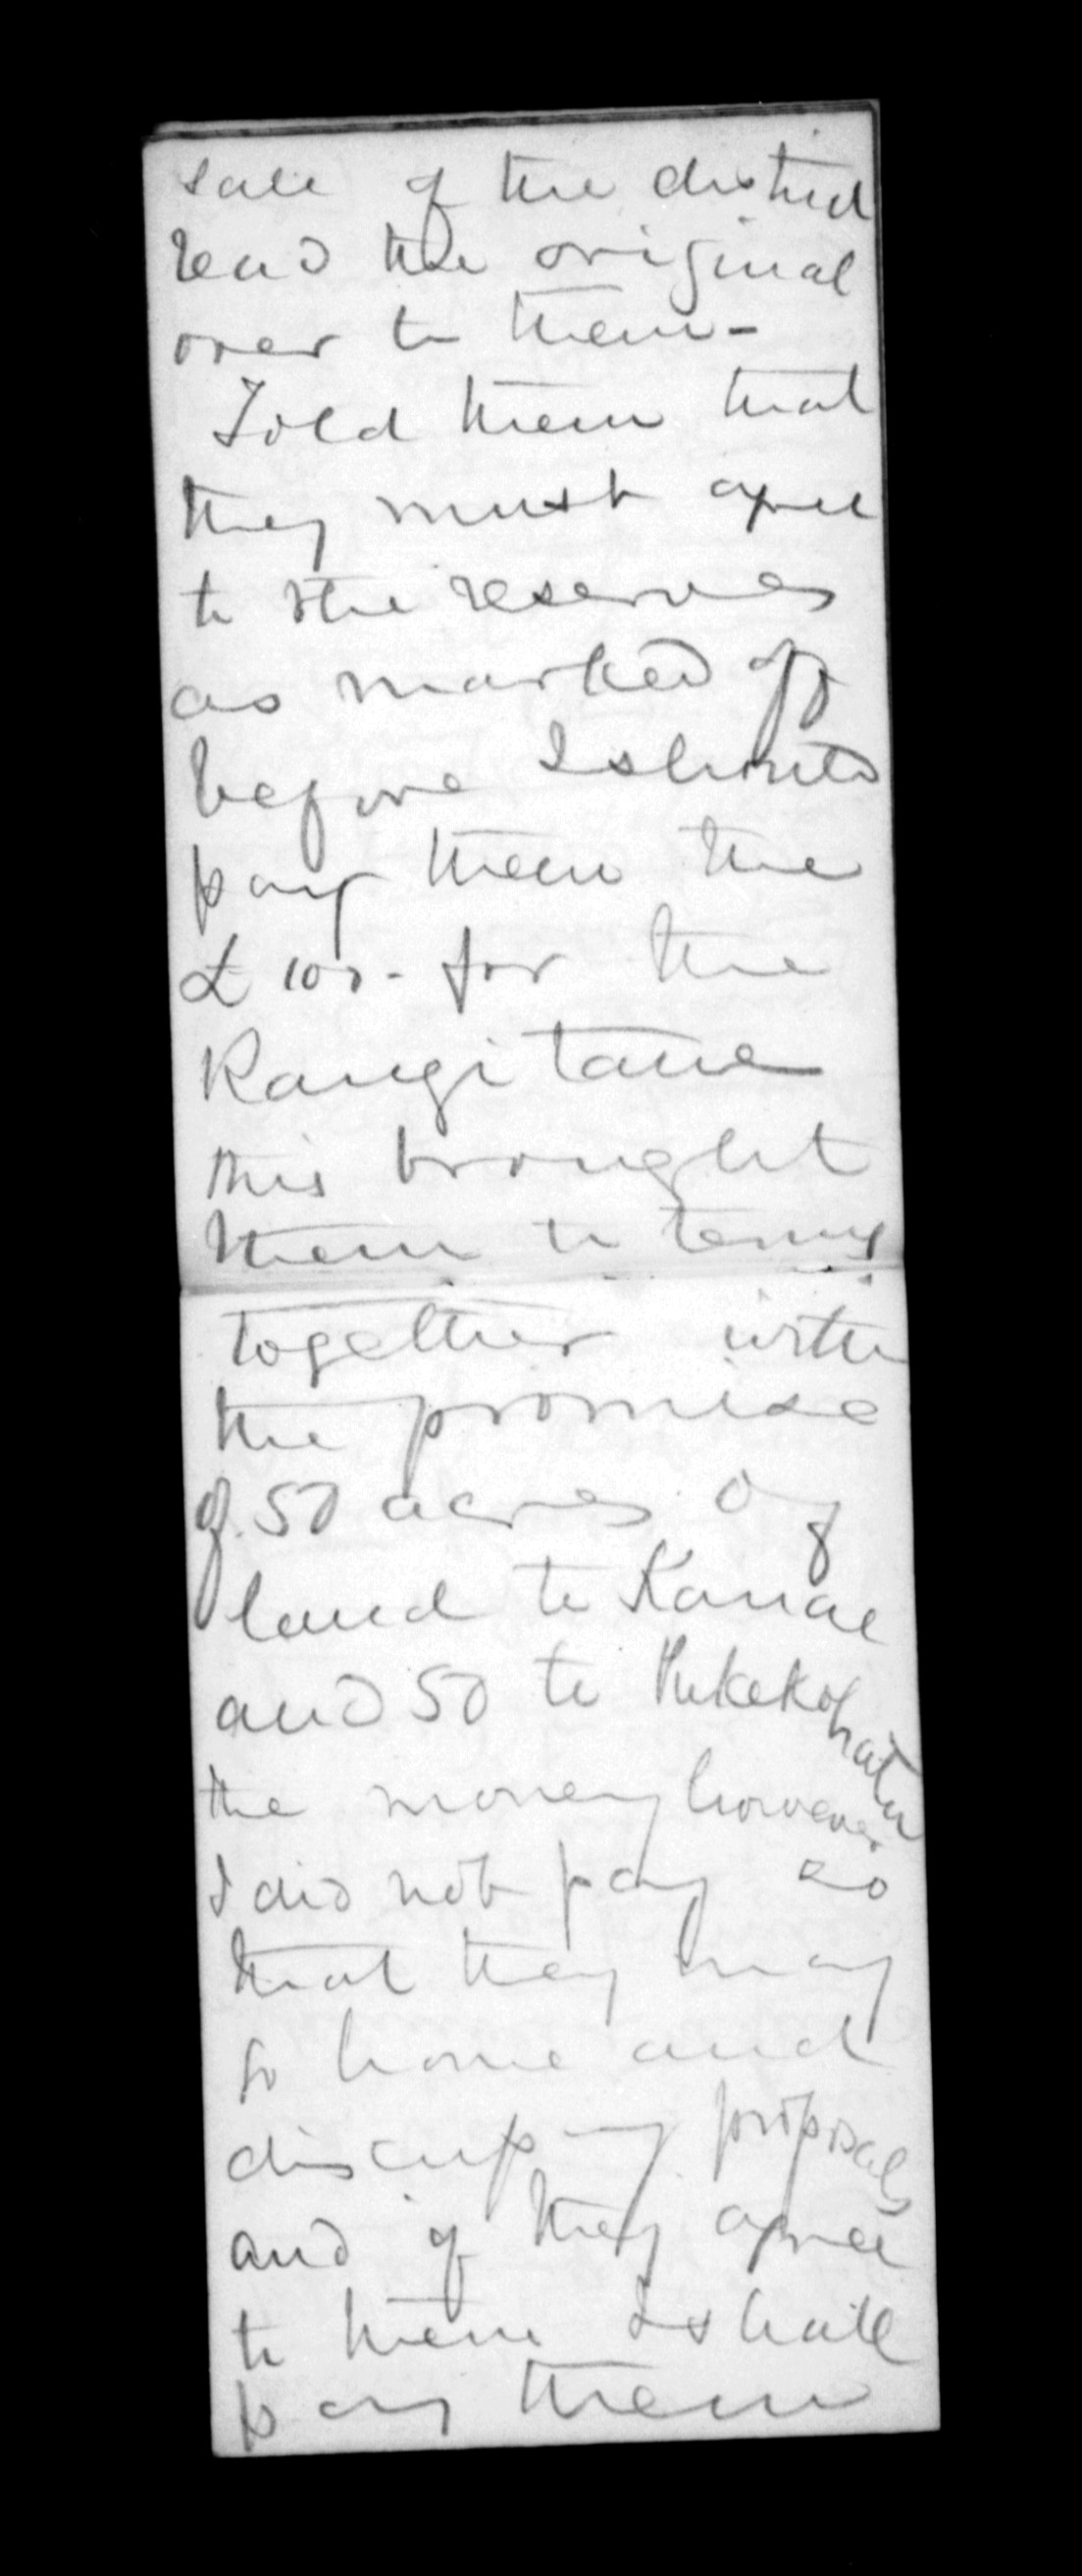 sale of the district
read the original
over to them -
Told them that
they must agree
to the reserves
as marked off
before I should
pay them the
£100 - for the
Rangitane
this brought
them to terms
together with
the promise
of 50 acres of
land to Kanae
and 50 to Pukekohatu
the money however
I did not pay so
that they may
go home and
discuss my proposals
and if they agree
to them I shall
pay them